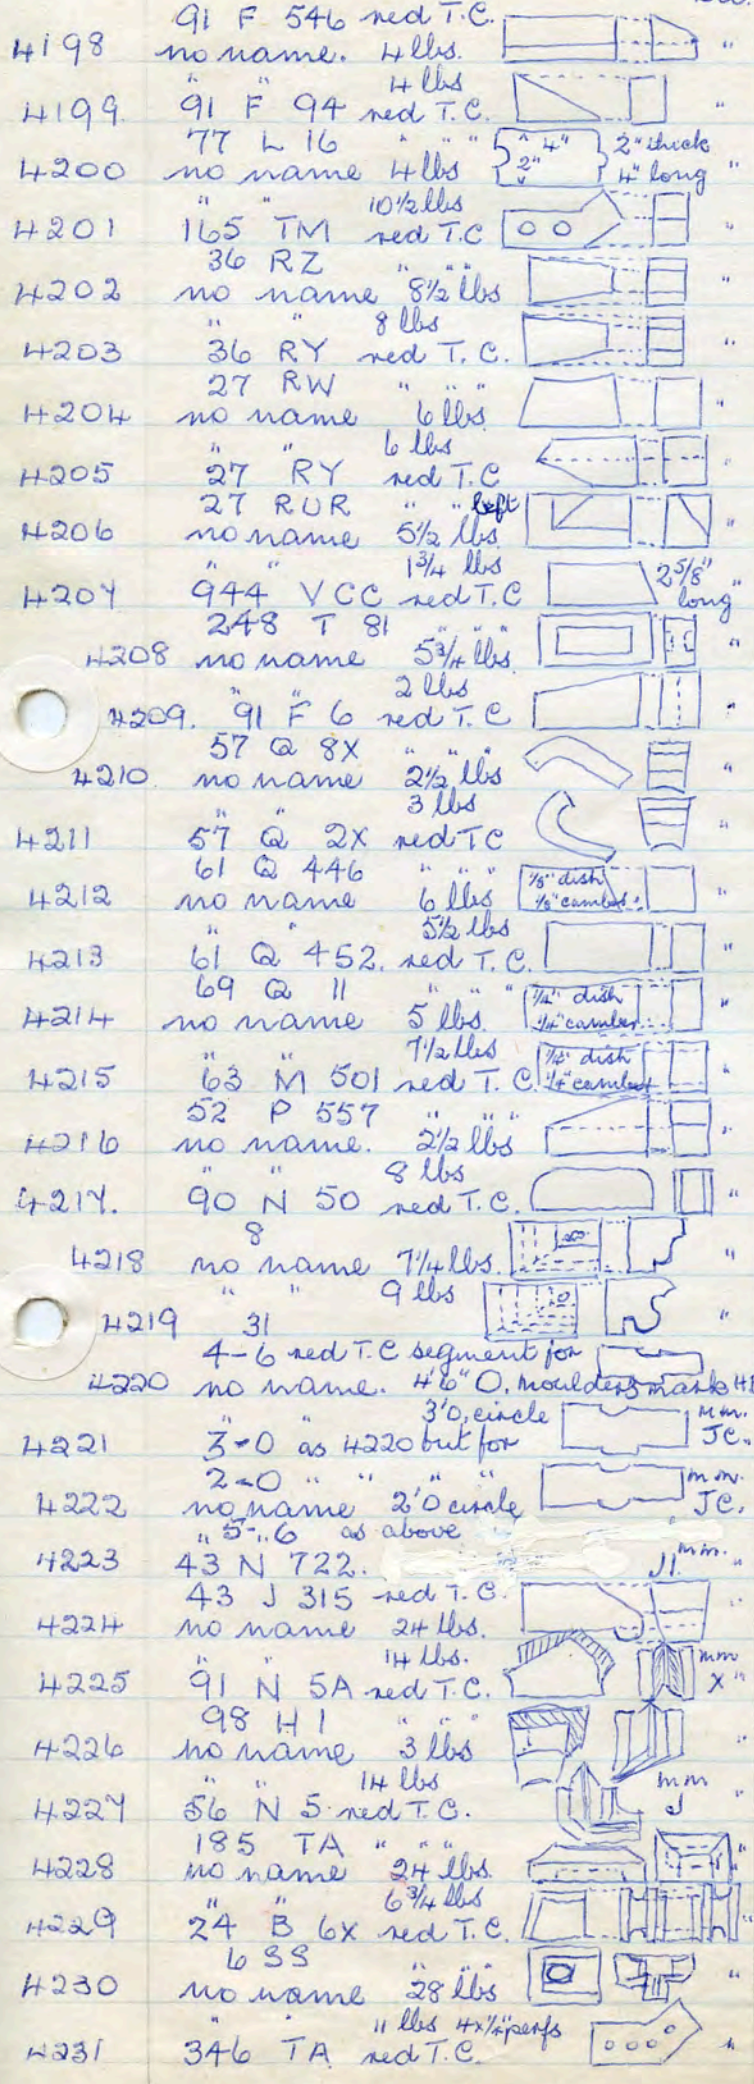 91 F 546 red T.C.
4198 no name. 4 lbs. "
" " 4 lbs
4199. 91 F 94 red T.C. "
77 L 16 " " " 4" 2" thick
4200 no name 4 lbs 2" 4" long "
" " 10 1/2 lbs
4201 165 TM red T.C "
36 RZ " " "
4202 no name 8 1/2 lbs "
" " 8 lbs
4203 36 RY red T.C. "
27 RW " " "
4204 no name 6 lbs "
" " 6 lbs
4205 27 RY red T.C "
27 RUR " " left
4206 no name 5 1/2 lbs "
" " 1 3/4 lbs 2 5/8"
4207 944 VCC red T.C long "
248 T 81 " " "
4208 no name 5 3/4 lbs "
" " 2 lbs
4209. 91 F 6 red T.C "
57 Q 8X " " "
4210 no name 2 1/2 lbs "
" " 3 lbs
4211 57 Q 2X red TC "
61 Q 446 " " " 1/8" dish
4212 no name 6 lbs 1/8" camber "
" " 5 1/2 lbs
4213 61 Q 452. red T.C. "
69 Q 11 " " " 1/4" dish "
4214 no name 5 lbs. 1/4" camber
" " 7 1/2 lbs 1/4" dish
4215 63 M 501 red T.C. 1/4" camber "
52 P 557 " " "
4216 no name. 2 1/2 lbs "
" " 8 lbs
4217. 90 N 50 red T.C. "
8
4218 no name 7 1/4 lbs. "
" " 9 lbs
4219 31 "
4-6 red T.C segment for
4220 no name. 4'6" O. moulders mark
" " 3'0, circle m m.
4221 3-0 as 4220 but for JC. "
2-0 " " " " m m.
4222 no name 2'0 circle JC.
" 5-6 as above
4223 43 N 722. mm. "
43 J 315 red T.C.
4224 no name 24 lbs.
" " 14 lbs. mm
4225 91 N 5A red T.C. X "
98 H 1 " " "
4226 no name 3 lbs "
" " 14 lbs mm
4227 56 N 5 red T.C. J "
185 TA " " "
4228 no name 24 lbs. "
" " 6 3/4 lbs
4229 24 B 6X red T.C. "
6 SS " "
4230 no name 28 lbs "
" " 11 lbs 4x 1/2" perfs
4231 346 TA red T.C. "